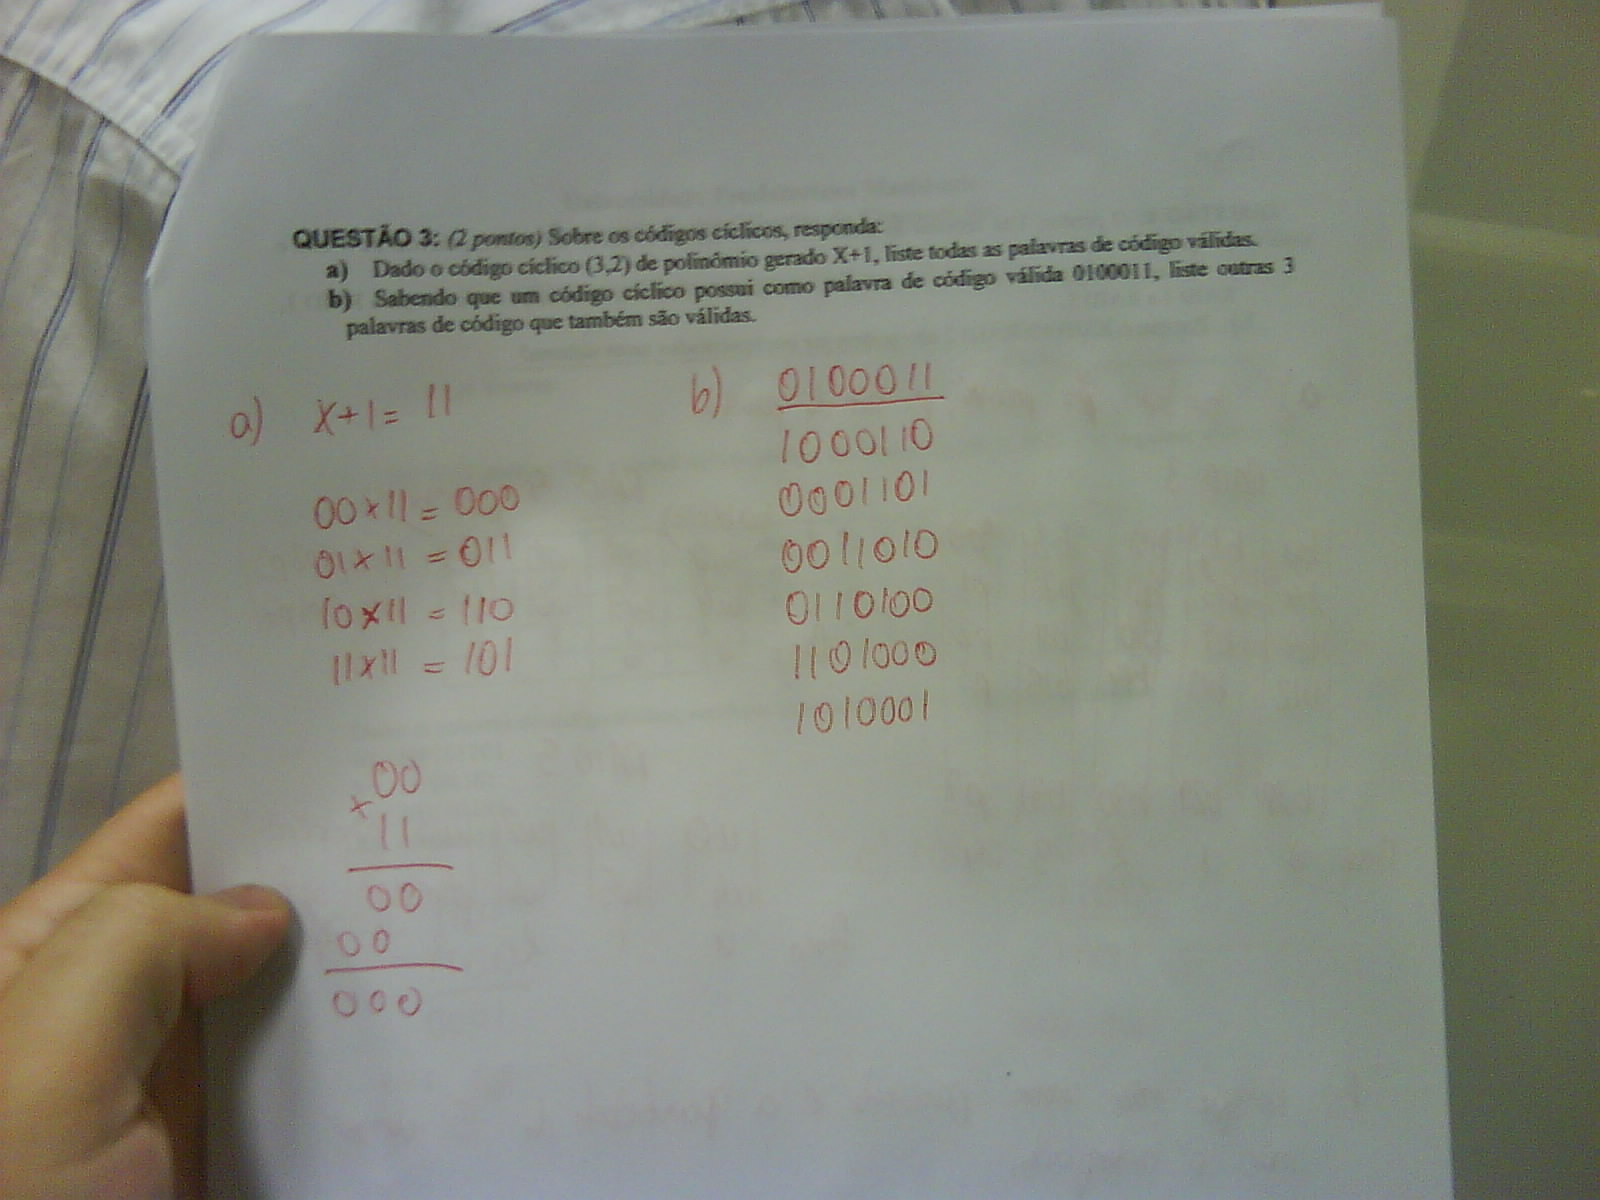 QUESTÃO 3: (2 pontos) Sobre os códigos cíclicos, responda:
a) Dado o código cíclico (3,2) de polinômio gerado X+1, liste todas as palavras de código válidas.
b) Sabendo que um código cíclico possui como palavra de código válida 0100011, liste outras 3
palavras de código que também são válidas.
a) X+1= 11
00×11 = 000
01×11 = 011
10×11 = 110
11×11 = 101
00
×
11
00
00
000
b) 0100011
1000110
0001101
0011010
0110100
1101000
1010001